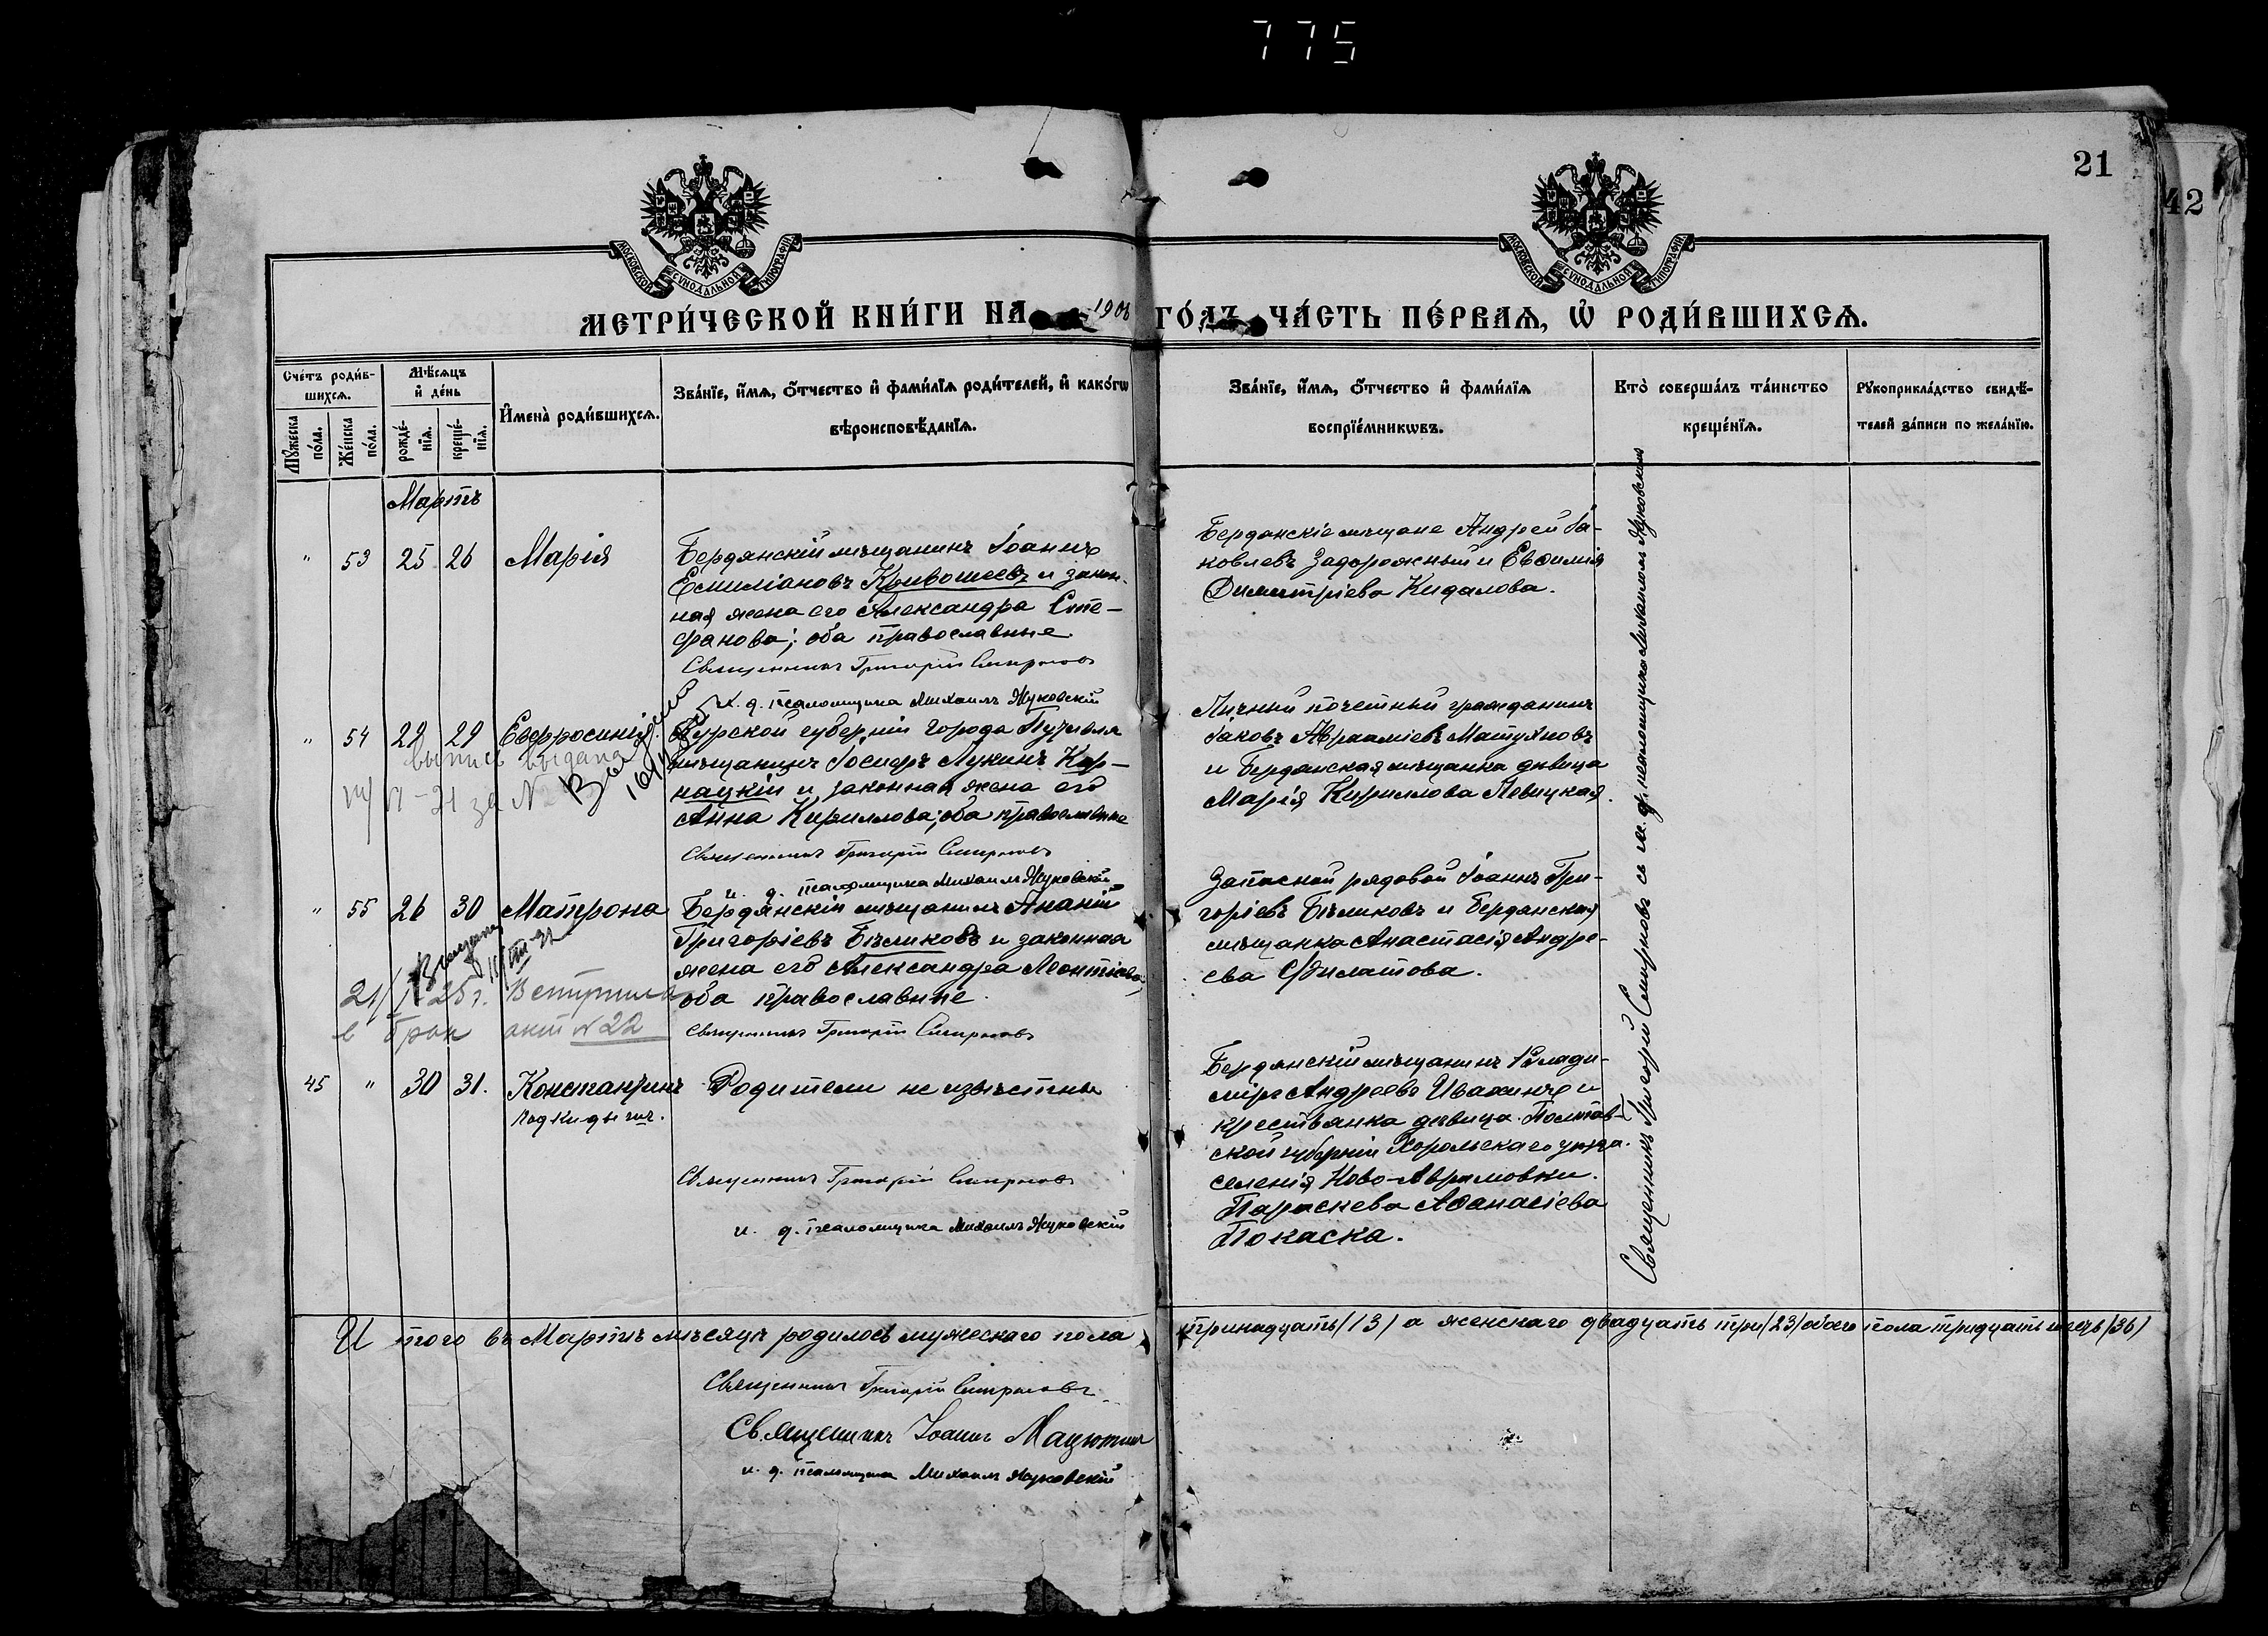 775
21
42
МОСКОВСКОЙ СѴНОДАЛЬНОЙ ТИПОГРАФІИ
МОСКОВСКОЙ СѴНОДАЛЬНОЙ ТИПОГРАФІИ
МЕТРИ́ЧЕСКОЙ КНИ́ГИ НА 1908 ГО́ДЪ, ЧА́СТЬ ПЕ́РВАѦ, Ѡ҆ РОДИ́ВШИХСѦ.
Сче́тъ роди́в-
шихсѧ.
Мꙋ́жеска по́ла.
Же́нска по́ла.
Мѣ́сѧцъ и҆ де́нь
рожде́-нїѧ.
креще́-нїѧ.
И҆мена̀ роди́вшихсѧ.
Зва́нїе, и҆́мѧ, ѻ҆́тчество и҆ фами́лїѧ роди́телей, и҆ како́гѡ
вѣроисповѣ́данїѧ.
Зва́нїе, и҆́мѧ, ѻ҆́тчество и҆ фами́лїѧ
воспрїе́мникѡвъ.
Кто̀ соверша́лъ та́инство
креще́нїѧ.
Рꙋкоприкла́дство свидѣ́-
телей за́писи по жела́нїю.
Мартъ
" 53 25 26 Марія
Бердянскій мѣщанинъ Іоаннъ
Емиліановъ Кривошеевъ и закон-
ная жена его Александра Сте-
фанова; оба православные
Священникъ Григорій Смирновъ
и. д. псаломщика Михаилъ Жуковскій
Бердянскіе мѣщане Андрей Іа-
ковлевъ Задорожный и Евѳимія
Димитріева Кидалова.
" 54 29 29 Евфросинія
выпись выдана
VI-21 за №
Курской губерніи города Путивля
мѣщанинъ Іосифъ Лукинъ Кар-
нацкій и законная жена его
Анна Кириллова; оба православные
Священникъ Григорій Смирновъ
и. д. псаломщика Михаилъ Жуковскій
Личный почетный гражданинъ
Іаковъ Авраміевъ Матуяновъ
и Бердянская мѣщанка дѣвица
Марія Кириллова Левицкая.
" 55 26 30 Матрона
21/I-25 г. Вступила
в брак акт № 22
Бердянскій мѣщанинъ Ананій
Григоріевъ Бѣликовъ и законная
жена его Александра Леонтіева;
оба православные.
Священникъ Григорій Смирновъ
Запасной рядовой Іоаннъ Гри-
горіевъ Бѣликовъ и Бердянская
мѣщанка Анастасія Андре-
ева Филатова.
45 " 30 31. Константинъ
подкидышъ.
Родители неизвѣстны
Священникъ Григорій Смирновъ
и. д. псаломщика Михаилъ Жуковскій
Бердянскій мѣщанинъ Влади-
міръ Андреевъ Ивахинъ и
крестьянка дѣвица Полтав-
ской губерніи Хорольскаго уѣзда.
селенія Ново-Аврамовки.
Параскева Аѳанасіева
Покаска.
Священникъ Григорій Смирновъ съ и. д. псаломщика Михаиломъ Жуковскимъ
Итого въ Мартѣ мѣсяцѣ родилось мужескаго пола тринадцать /13/ а женскаго двадцать три /23/ обоего пола тридцать шесть /36/
Священникъ Григорій Смирновъ
Священникъ Іоаннъ Мацютинъ
и. д. псаломщика Михаилъ Жуковскій